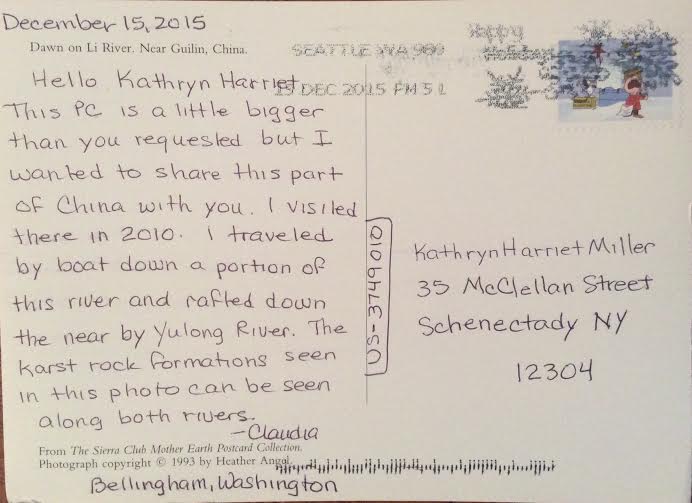 December 15, 2015
Dawn on Li River. Near Guilin, China.
Hello Kathryn Harriet
This PC is a little bigger
than you requested but I
wanted to share this part
of China with you. I visited
there in 2010. I traveled
by boat down a portion of
this river and rafted down
the near by Yulong River. The
karst rock formations seen
in this photo can be seen
along both rivers.
-Claudia
From The Sierra Club Mother Earth Postcard Collection.
Photograph copyright © 1993 by Heather Angel.
Bellingham, Washington
SEATTLE WA 980
15 DEC 2015 PM 5 L
Happy
Holidays
US-3749010
Kathryn Harriet Miller
35 McClellan Street
Schenectady NY
12304